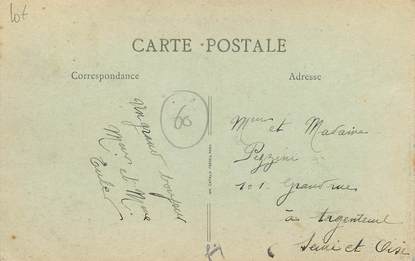 lot
CARTE POSTALE
Correspondance
Adresse
60
Un grand bonjour
Mr et Mme
Mr et Madame
Pezzini
101 Grand rue
à Argenteuil
Seine et Oise